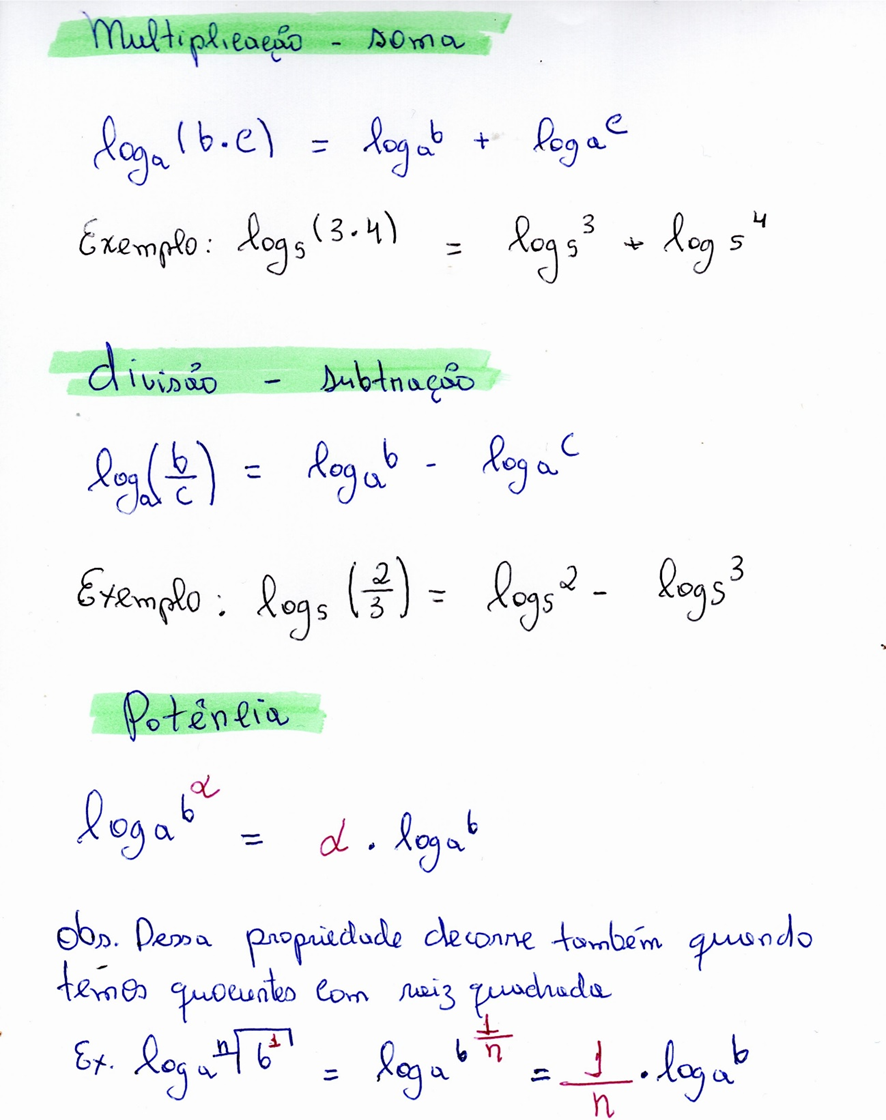 Multiplicação - soma
logₐ(b.c) = logₐᵇ + logₐᶜ
Exemplo: log₅(3.4) = log₅³ + log₅⁴
divisão - subtração
logₐ(b/c) = logₐᵇ - logₐᶜ
Exemplo: log₅(2/3) = log₅² - log₅³
Potência
logₐb^α = α . logₐᵇ
Obs. Dessa propriedade decorre também quando
temos quocientes com raiz quadrada
Ex. logₐⁿ√b¹ = logₐb^(1/n) = 1/n . logₐᵇ